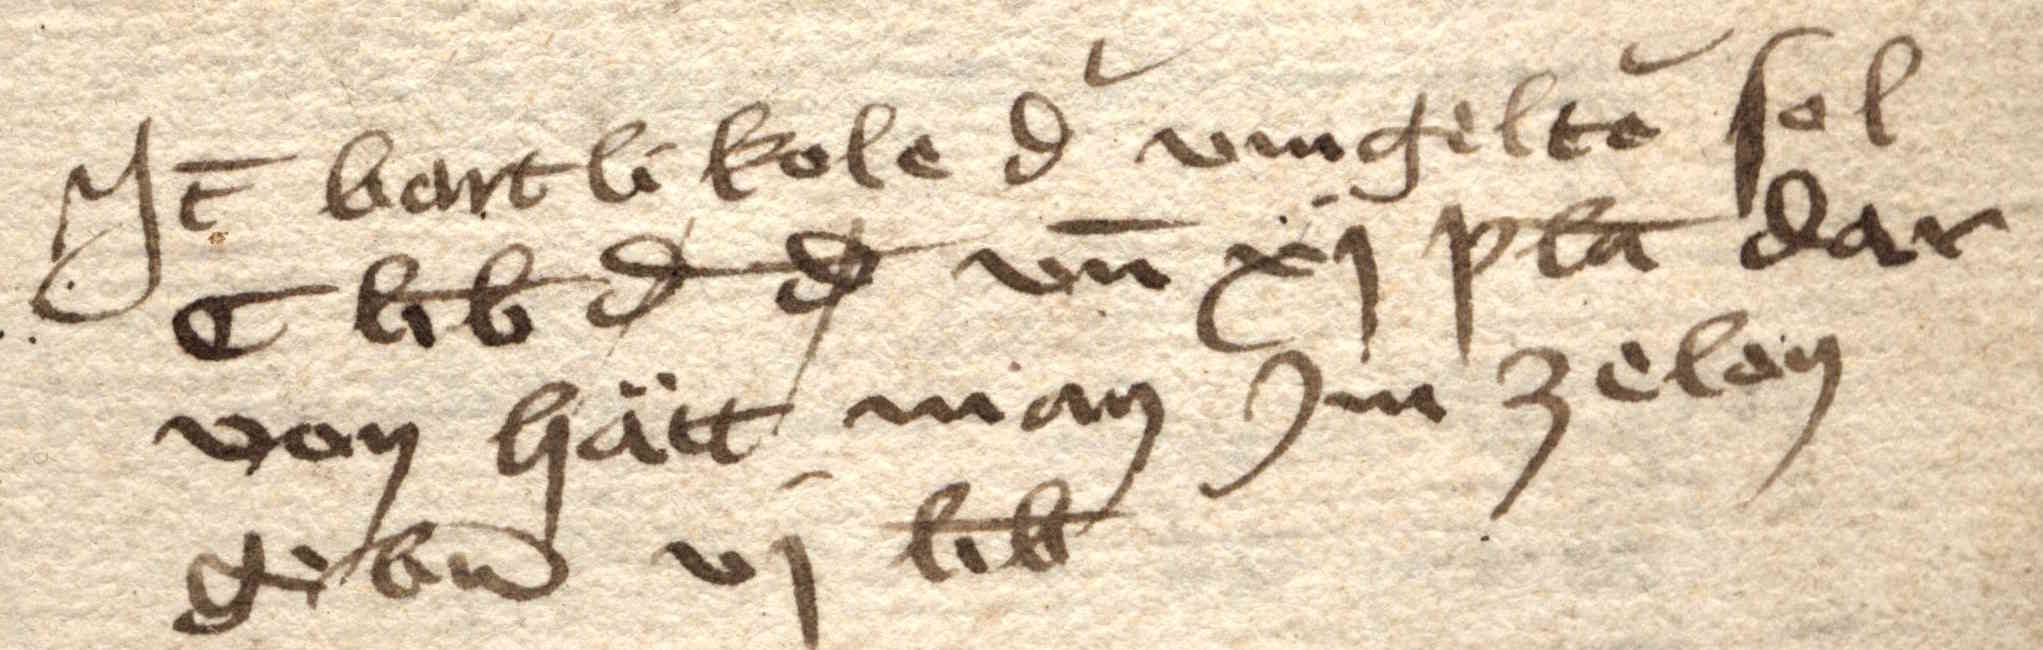 Jt̄ bartli kole d᷑ vmgelte᷑ sol
C lib d d vn̄ xj pla dar
von hätt man Jm zelon
gebn vj lib